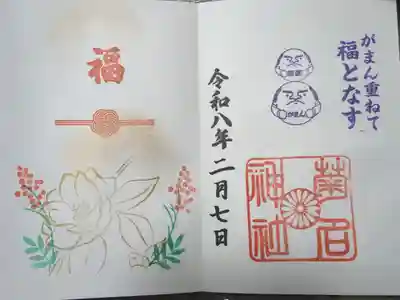 がまん重ねて
福となす
がまん
菊名
神社
令和八年二月七日
福